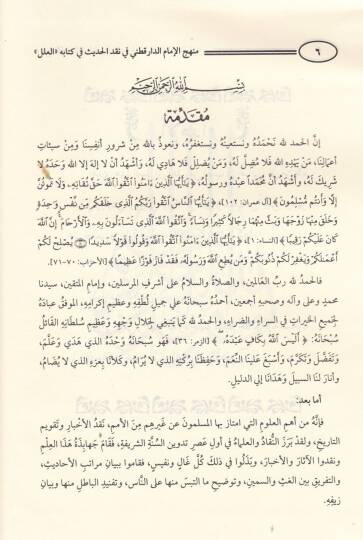 ٦
منهج الإمام الدارقطني في نقد الحديث في كتابه «العلل»
بسم الله الرحمن الرحيم
مُقَدِّمَة
إنَّ الحمد لله نَحْمَدُهُ ونستعينُهُ ونستغفرُهُ، ونعوذُ بالله مِنْ شرورِ أنفسِنَا ومِنْ سيئاتِ
أعمالِنَا، مَنْ يَهْدِهِ الله فلَا مُضِلَّ لَهُ، ومَنْ يُضْلِلْ فلا هَادِيَ لَهُ، وأشهَدُ أنْ لا إلهَ إلا اللهُ وَحْدَهُ لا
شَرِيكَ لَهُ، وأَشهَدُ أنَّ مُحَمَّدًا عَبْدُهُ ورسولُهُ، ﴿يَٰٓأَيُّهَا ٱلَّذِينَ ءَامَنُوا۟ ٱتَّقُوا۟ ٱللَّهَ حَقَّ تُقَاتِهِۦ وَلَا تَمُوتُنَّ
إِلَّا وَأَنتُم مُّسْلِمُونَ﴾ [آل عمران: ١٠٢]، ﴿يَٰٓأَيُّهَا ٱلنَّاسُ ٱتَّقُوا۟ رَبَّكُمُ ٱلَّذِى خَلَقَكُم مِّن نَّفْسٍ وَٰحِدَةٍ
وَخَلَقَ مِنْهَا زَوْجَهَا وَبَثَّ مِنْهُمَا رِجَالًا كَثِيرًا وَنِسَآءً ۚ وَٱتَّقُوا۟ ٱللَّهَ ٱلَّذِى تَسَآءَلُونَ بِهِۦ وَٱلْأَرْحَامَ ۚ إِنَّ ٱللَّهَ
كَانَ عَلَيْكُمْ رَقِيبًا﴾ [النساء: ١]، ﴿يَٰٓأَيُّهَا ٱلَّذِينَ ءَامَنُوا۟ ٱتَّقُوا۟ ٱللَّهَ وَقُولُوا۟ قَوْلًا سَدِيدًا ۝ يُصْلِحْ لَكُمْ
أَعْمَٰلَكُمْ وَيَغْفِرْ لَكُمْ ذُنُوبَكُمْ ۗ وَمَن يُطِعِ ٱللَّهَ وَرَسُولَهُۥ فَقَدْ فَازَ فَوْزًا عَظِيمًا﴾ [الأحزاب: ٧٠-٧١].
فالحمدُ للهِ ربِّ العَالمين، والصلاةُ والسلامُ على أشرفِ المرسلين، وإمامِ المتقين، سيدنا
محمدٍ وعلى آله وصحبِهِ أجمعين، أحمدُهُ سبحانَهُ على جميلِ لُطْفِهِ وعظيمِ إكرامِهِ، الموفقُ عبادَهُ
لجميعِ الخيراتِ في السراءِ والضراءِ، والحمدُ لله كمَا يَنبَغي لجلالِ وَجْههِ وعظيمِ سلطانِهِ القائلُ
سُبْحَانَهُ: ﴿أَلَيْسَ ٱللَّهُ بِكَافٍ عَبْدَهُۥ﴾ [الزمر: ٣٦]، فهُو سُبحَانَهُ وَحْدَهُ الذي هَدَى وعَلَّمَ،
وتَفَضَّلَ وتَكَرَّمَ، وأَسبَغَ علينَا النِّعَمَ، وحَفِظَنَا بِرُكْنِهِ الذي لا يُرَامُ، وكلأَنَا بعِزِهِ الذي لا يُضَامُ،
وأنارَ لنَا السبيلَ وهَدَانَا إلى الدليلِ.
أما بعد:
فإنَّه مِن أهمِ العلومِ التي امتازَ بها المسلمونَ عن غيرِهِم مِنَ الأممِ، نَقْدُ الأخبارِ وتقويمِ
التاريخِ، ولقدْ بَرَزَ النُّقادُ والعلماءُ في أولِ عصرِ تدوينِ السُّنَّةِ الشريفةِ، فَقَامَ جَهابِذَةُ هَذا العِلمِ
ونقدوا الآثارَ والأخبارَ، وبَذَلُوا في ذلك كُلَّ غَالٍ ونفيسٍ، فقاموا ببيانِ مراتبِ الأحاديثِ،
والتفريقِ بينَ الغثِ والسمينِ، وتوضيحِ ما التبسَ منها على النَّاسِ، وتفنيدِ الباطلِ منها وبيانِ
زيفِهِ.